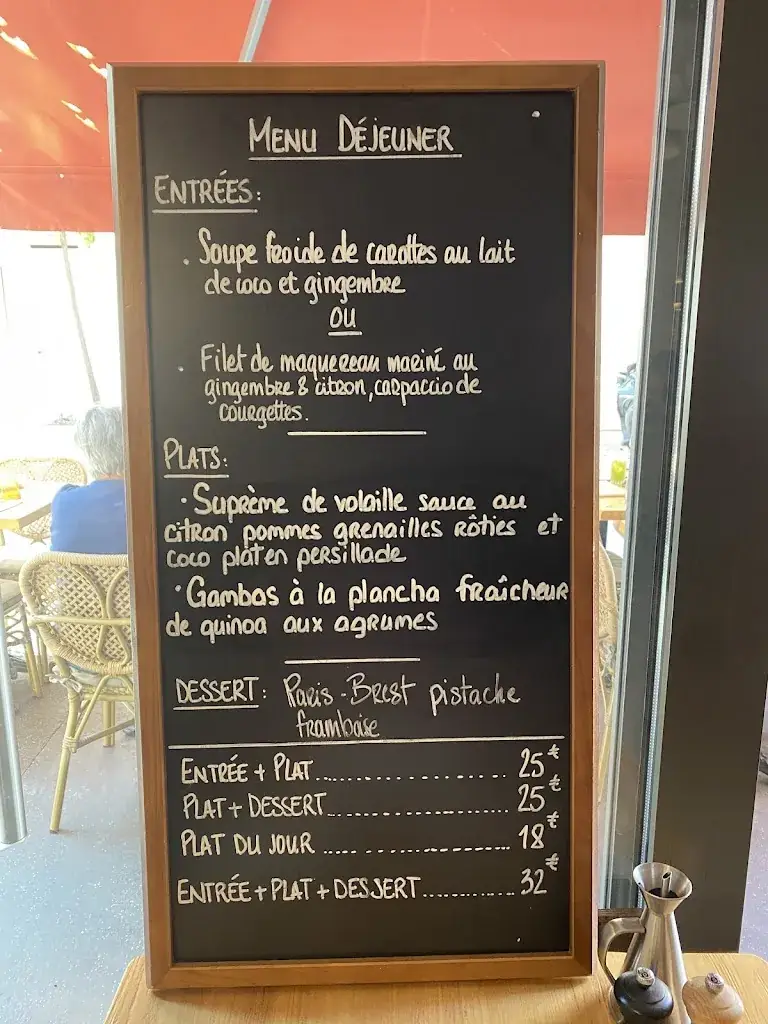 MENU DÉJEUNER
ENTRÉES:
. Soupe froide de carottes au lait
de coco et gingembre
OU
. Filet de maquereau mariné au
gingembre & citron, carpaccio de
courgettes.
PLATS:
· Suprème de volaille sauce au
citron pommes grenailles rôties et
coco platen persillade
· Gambas à la plancha fraîcheur
de quinoa aux agrumes
DESSERT: Paris-Brest pistache
framboise
ENTRÉE + PLAT................... 25€
PLAT + DESSERT................... 25€
PLAT DU JOUR ................... 18€
ENTRÉE + PLAT + DESSERT............ 32€